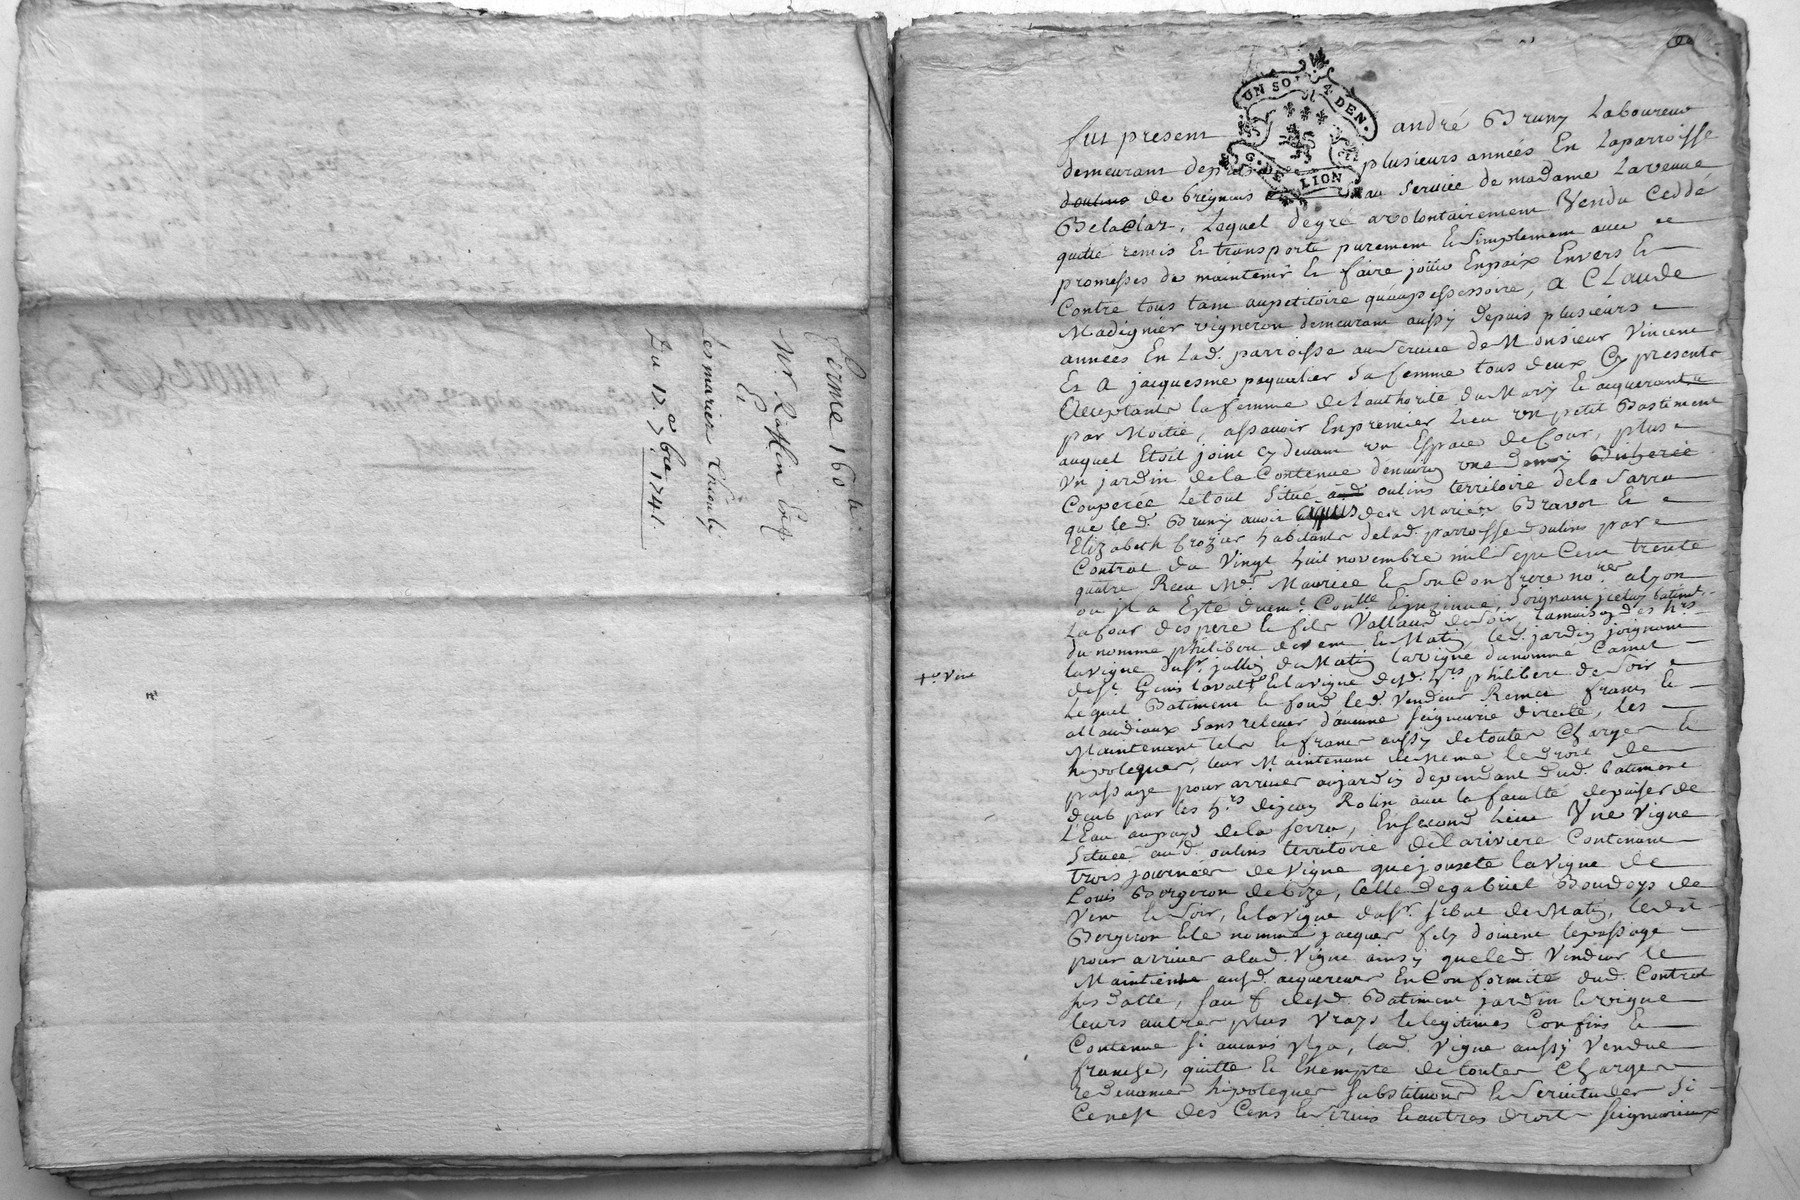 ferme 160 ll
Mr Laflen
Et
les mariez Thieul
Du 17.e 7bre 1741.
UN SO. 4 DEN.
G. DE LION
fut present andré Bruny Laboureur
demeurant depuis plusieurs années En Laparroisse
de Breignais au service de madame Laveuve
Delaclaz, Lequel degré avolontairement Vendu Ceddé
quitté remis Et transporté purement Et Simplement avec
promesses de maintenir Et faire jouir Enpaix Envers Et
Contre tous tant aupetitoire quaupossessoire, A CLaude
Madignier vigneron demeurant aussy depuis plusieurs
années En Lad. parroisse au Service de Monsieur Vincent
Et A jacquesme paquelier Sa femme tous deux Cy presents
Acceptants la femme de Lauthorité du Mary Et acquerants
par Moitié, assavoir Enpremier Lieu un petit Bastiment
auquel Etoit joint Cy devant un Espace de Cour, plus
Un jardin de la Contenue denviron une demy Bicherée
Couperée Letout Situé oulins territoire de la Sarra
que led. Bruny avoit acquis des Mariés Bravot Et
Elizabeth Crozier habitants delad. parroisse doulins par
Contrat du Vingt huit novembre mil Sept Cent trente
quatre Recu Me. Maurice Et Son Confrere no.res alyon
ou jl a Esté duem.t Cont.llé Et jnsinué, joignant jceluy batiment
Lacour des pere Et fils Vallaud de Soir, lamaison des h.rs
du nommé philibert de vent Et Matin, led. jardin joignant
lavigne du S.r jullin du Matin lavigne dunommé Camet
de S.t Genis Laval Et lavigne desd. h.rs philibert de Soir
+ o. Vere
Lequel Batiment Et fond led. Vendeur Remet francs Et
allaudiaux Sans relever daucune Seigneurie directe, les
Maintenant tels Et francs aussy detoutes Charges Et
hipoteques, leur Maintenant demême le droit de
passage pour arriver aujardin dependant dud. batiment
deub par les h.rs dejean Rolin avec la faculté depuiser de
L'Eau aupuys de la Serra, Ensecond Lieu Une Vigne
Située aud. oulins territoire de Lariviere Contenant
trois journées de Vigne que jouxte lavigne de
Louis Bergeron de bize, Celle de gabriel Boudoys de
Vent Et Soir, Et lavigne du S.r sibut de Matin, ledit
Bergeron Et le nommé jacques fils doivent lepassage
pour arriver alad. Vigne ainsy queled. Vendeur le
Maintient ausd. acquereurs En Conformité dud. Contrat
susdatte, Sauf desd. Batiment jardin Et vigne
leurs autres plus Vrays Et legitimes Confins Et
Contenue Si aucuns yla, lad. Vigne aussy Vendue
franche, quitte Et Exempte detoutes Charges
redevances hipoteques Substitutions Et Servitudes Si
Cenest des Cens Et Servis Et autres droits Seigneuriaux